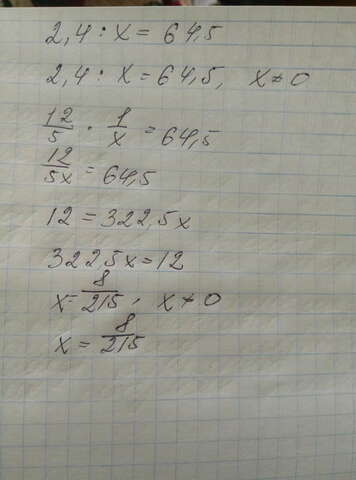 2,4 : x = 64,5
2,4 : x = 64,5, x ≠ 0
12/5 · 1/x = 64,5
12/5x = 64,5
12 = 322,5x
322,5x = 12
x = 8/215, x ≠ 0
x = 8/215